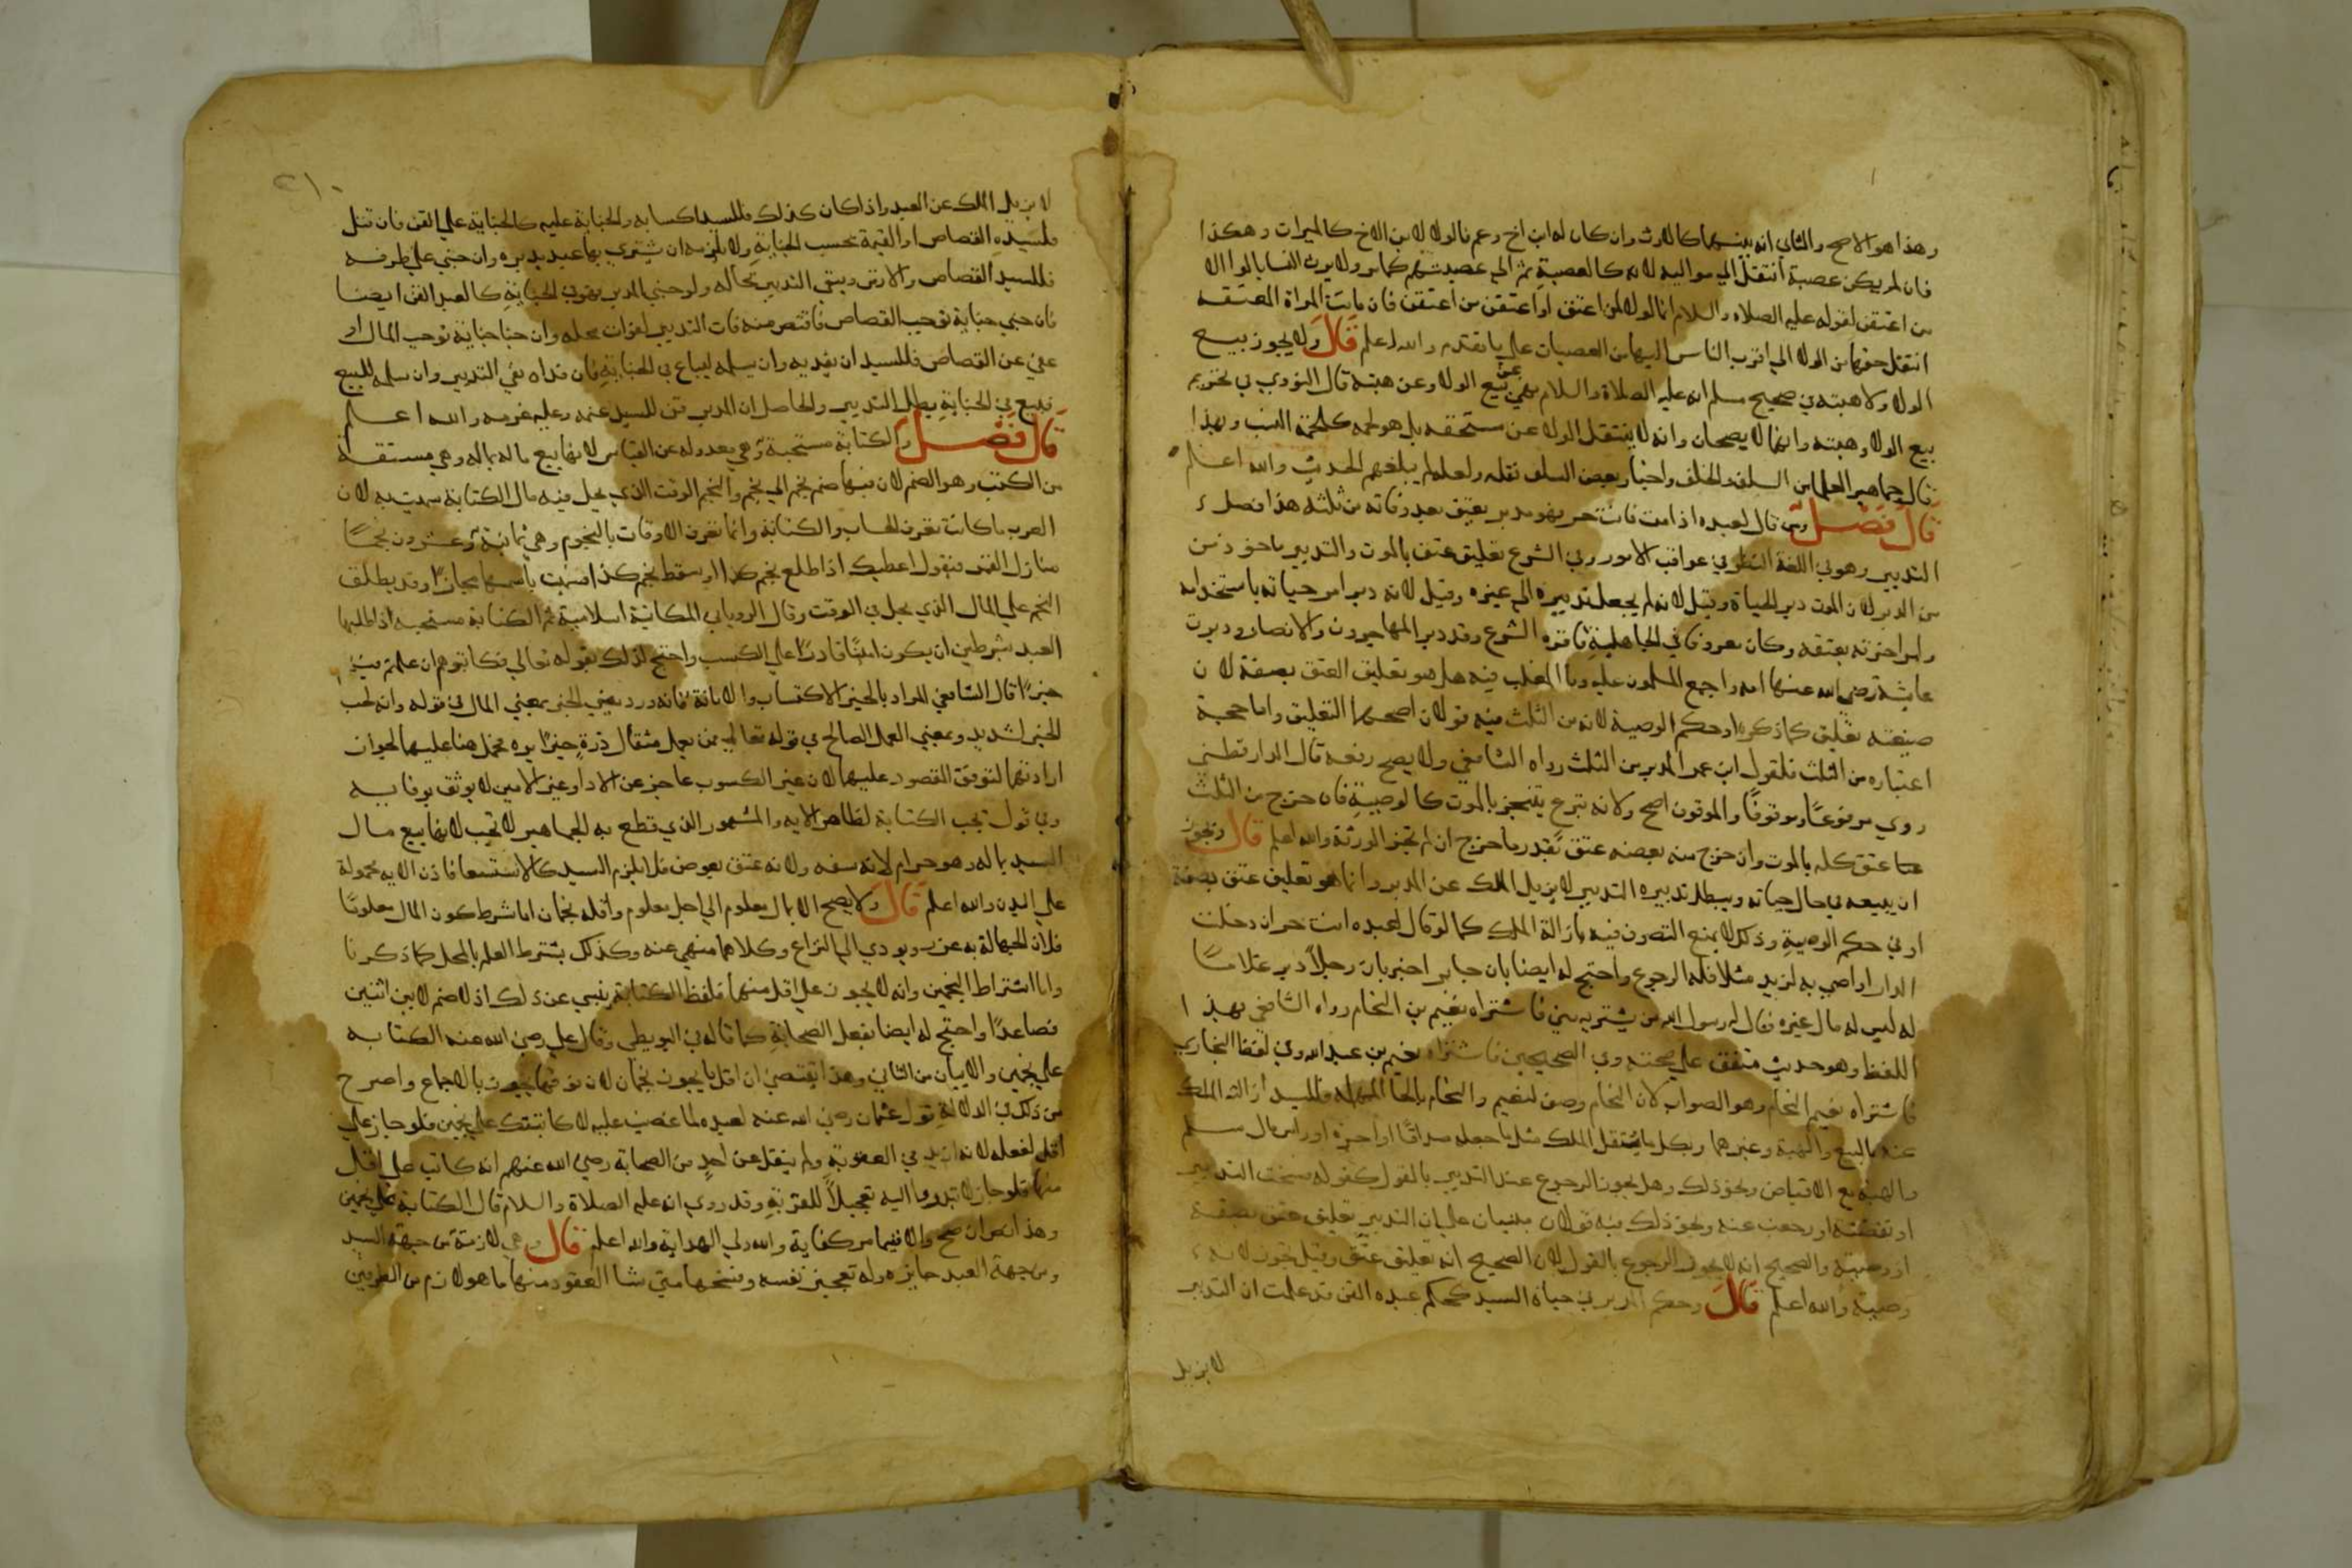 وهذا هو الاصح والثاني انه بينهما كالارث وان كان له ابن اخ وعم فالولا لابن الاخ كالميراث وهكذا
فان لم يكن عصبة انتقل الي مواليه لانه كالعصبة ثم الي عصبتهم كما مر ولا يرث النسا بالولا الا
من اعتقن لقوله عليه الصلاه والسلام انما الولا لمن اعتق او اعتقن من اعتقن فان ماتت المراة المعتقه
انتقل حقها من الولا الي اقرب الناس اليها من العصبات علي ما تقدم والله اعلم قال ولا يجوز بيع
الولا ولا هبته في صحيح مسلم انه عليه الصلاة والسلام نهي عن بيع الولا وعن هبته قال النووي في تحريم
بيع الولا وهبته وانهما لا يصحان وانه لا ينتقل الولا عن مستحقه بل هو لحمه كلحمة النسب وبهذا
قال جماهير العلما من السلف والخلف واجاز بعض السلف نقله ولعله لم يبلغهم الحديث والله اعلم
قال فصل ومن قال لعبده اذا مت فانت حر فهو مدبر يعتق بعد وفاته من ثلثه هذا فصل
التدبير وهو في اللغة النظر في عواقب الامور وفي الشرع تعليق عتق بالموت والتدبير ماخوذ من
من الدبر لان الموت دبر الحياة وقيل لانه لم يجعل تدبيره الي غيره وقيل لانه دبر امر حياته باستخدامه
وامر اخرته بعتقه وكان معروفا في الجاهلية فاقره الشرع وقد دبر المهاجرون والانصار ودبرت
عايشة رضي الله عنها امه واجمع المسلمون عليه وما المغلب فيه هل هو تعليق العتق بصفة لان
صيغته تعليق كما ذكره او حكم الوصية لانه من الثلث فيه قولان اصحهما التعليق واما حجية
اعتباره من الثلث فلقول ابن عمر المدبر من الثلث رواه الشافعي ولا يصح رفعه قال الدارقطني
روي مرفوعًا وموقوفًا والموقوف اصح ولانه تبرع يتنجز بالموت كالوصية فان خرج من الثلث
عتق كله بالموت وان خرج منه بعضه عتق بقدر ما خرج ان لم تجز الورثة والله اعلم قال ويجوز
ان يبيعه في حال حياته ويبطل تدبيره التدبير لا يزيل الملك عن المدبر وانما هو تعليق عتق بصفة
او في حكم الوصية وذلك لا يمنع التصرف فيه بازالة الملك كما لو قال لعبده انت حر ان دخلت
الدار او اوصي به لزيد مثلا فله الرجوع واحتج له ايضا بان جابر اخبر بان رجلاً دبر غلامًا
له ليس له مال غيره فقال له رسول الله من يشتريه مني فاشتراه نعيم بن النحام رواه الشافعي بهذا
اللفظ وهو حديث متفق علي صحته وفي الصحيحين فاشتراه نعيم بن عبد الله وفي لفظ البخاري
فاشتراه نعيم النحام وهو الصواب لان النحام وصف لنعيم والنحام بالحا المهمله وللسيد ازالة الملك
عنه بالبيع والهبة وغيرهما وبكل ما ينتقل الملك مثل ما جعله صداقًا او اجره او راس مال سلم
والهبة مع الاقباض ونحو ذلك وهل يجوز الرجوع عن التدبير بالقول كقوله فسخت التدبير
او نقضته او رجعت عنه ونحو ذلك فيه قولان مبنيان علي ان التدبير تعليق عتق بصفة
او وصية والصحيح انه لا يجوز الرجوع بالقول لان الصحيح انه تعليق عتق وقيل يجوز لانه
وصية والله اعلم قال وحكم المدبر في حياة السيد كحكم عبده القن قد علمت ان التدبير
لا يزيل
٢١٠
لا يزيل الملك عن العبد واذا كان كذلك فللسيد اكسابه والجناية عليه كالجناية علي القن فان قتل
فلسيده القصاص او القيمة بحسب الجناية ولا يلزمه ان يشتري بها عبد يدبره وان جني علي طرفه
فللسيد القصاص والارش ويبقي التدبير بحاله ولو جني المدبر فهو في الجناية كالعبد القن ايضا
فان جني جناية توجب القصاص فاقتص منه فات التدبير لفوات محله وان جنا جناية توجب المال او
عفي عن القصاص فللسيد ان يفديه وان يسلمه ليباع في الجناية فان فداه بقي التدبير وان سلمه للبيع
فبيع في الجناية بطل التدبير والحاصل ان المدبر قن للسيد غنمه وعليه غرمه والله اعلم
قال فصل والكتابة مستحبة وهي معدوله عن القياس لانها بيع ماله بماله وهي مشتقة
من الكتب وهو الضم لان فيها ضم نجم الي نجم والنجم الوقت الذي يحل فيه مال الكتابة سميت به لان
العرب ما كانت تعرف الحساب والكتابة وانما تعرف الاوقات بالنجوم وهي ثمانية وعشرون نجمًا
منازل القمر فيقول اعطيك اذا طلع نجم كذا او سقط نجم كذا فسميت باسمها مجازًا وقد يطلق
النجم علي المال الذي يحل في الوقت وقال الروياني المكاتبة اسلامية ثم الكتابة مستحبه اذا طلبها
العبد بشرطين ان يكون امينًا قادرًا علي الكسب واحتج لذلك بقوله تعالي فكاتبوهم ان علمتم فيهم
خيرًا قال الشافعي المراد بالخير الاكتساب والامانة فانه ورد بمعني الخير بمعني المال في قوله وانه لحب
الخير لشديد وبمعني العمل الصالح في قوله تعالي فمن يعمل مثقال ذرةٍ خيرًا يره فحمل هنا عليهما لجواز
ارادتهما لتوقف المقصود عليهما لان غير الكسوب عاجز عن الادا وغير الامين لا يوثق بوفايه
وفي قول تجب الكتابة لظاهر الايه والمشهور الذي قطع به الجماهير لا تجب لانها بيع مال
السيد بماله وهو حرام لانه سفه ولانه عتق بعوض فلا يلزم السيد كالاستسعا فاذن الايه محمولة
علي الندب والله اعلم قال ولا يصح الا بمال معلوم الي اجل معلوم واقله نجمان اما شرط كون المال معلومًا
فلان الجهالة به غرر ويودي الي النزاع وكلاهما منهي عنه وكذلك يشترط العلم بالمحل كما ذكرنا
واما اشتراط النجمين وانه لا يجوز علي اقل منهما فلفظ الكتابة ينبي عن ذلك اذ لا ضم الا بين اثنين
فصاعدًا واحتج له ايضا بفعل الصحابة كما قاله في البويطي وقال علي رضي الله عنه الكتابه
علي نجمين والايتان من الثاني وهذا يقتضي ان اقل ما يجوز نجمان لان فوقهما يجوز بالاجماع واصرح
من ذلك في الدلالة قول عثمان رضي الله عنه لعبده لما غضب عليه لاكاتبنك علي نجمين فلو جاز علي
اقل لفعله لانه ازيد في العقوبة ولم ينقل عن احدٍ من الصحابة رضي الله عنهم انه كاتب علي اقل
منهما فلو جاز لابتدروا اليه تعجيلاً للقربة وقد روي انه عليه الصلاة والسلام قال الكتابة علي نجمين
وهذا نص ان صح والا ففيما مر كفاية والله ولي الهداية والله اعلم قال وهي لازمة من جهة السيد
ومن جهة العبد جايزه وله تعجيز نفسه وفسخها متي شا العقود منها ما هو لازم من الطرفين